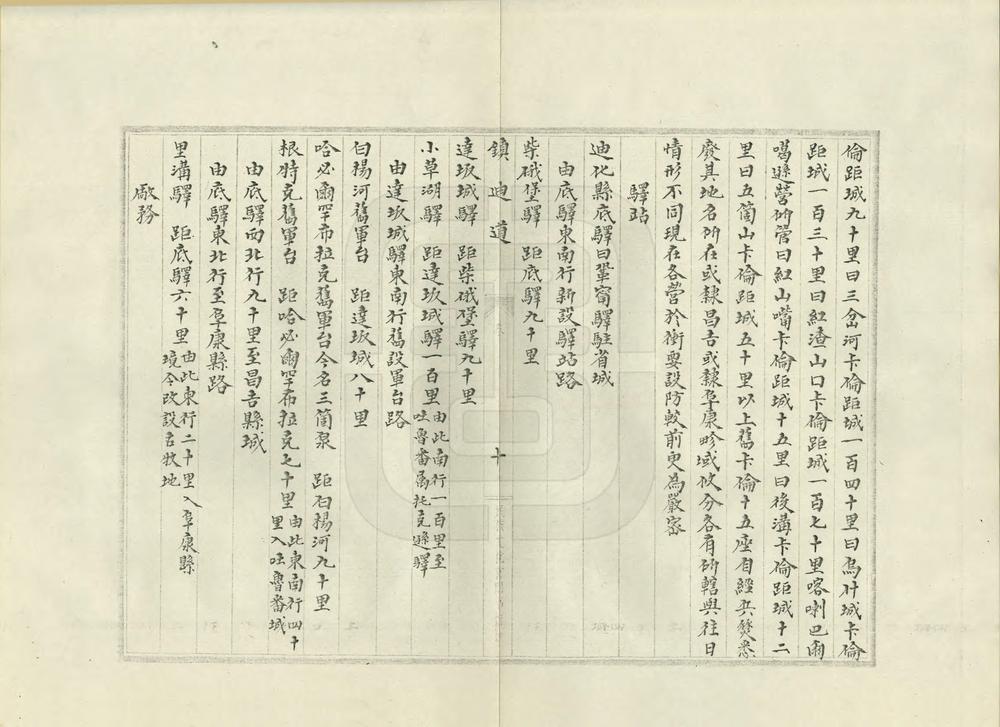 倫距城九十里曰三岔河卡倫距城一百四十里曰烏什城卡倫
距城一百三十里曰紅渣山口卡倫距城一百七十里喀喇巴爾
噶遜營所管曰紅山嘴卡倫距城十五里曰後溝卡倫距城十二
里曰五箇山卡倫距城五十里以上舊卡倫十五座自經兵燹悉
廢其地名所在或隸昌吉或隸阜康畛域攸分各有所轄與往日
情形不同現在各營於衝要設防較前更為嚴密
驛站
迪化縣底驛曰鞏甯驛駐省城
由底驛東南行新設驛站路
柴硪堡驛 距底驛九十里
鎮迪道 十
達坂城驛 距柴硪堡驛九十里
小草湖驛 距達坂城驛一百里由此南行一百里至吐魯番屬托克遜驛
由達坂城驛東南行舊設軍台路
白楊河舊軍台 距達坂城八十里
哈必爾罕布拉克舊軍台今名三箇泉 距白楊河九十里
根特克舊軍台 距哈必爾罕布拉克七十里由此東南行四十里入吐魯番城
由底驛西北行九十里至昌吉縣城
由底驛東北行至阜康縣路
黑溝驛 距底驛六十里由此東行二十里入阜康縣境今改設古牧地
廠務